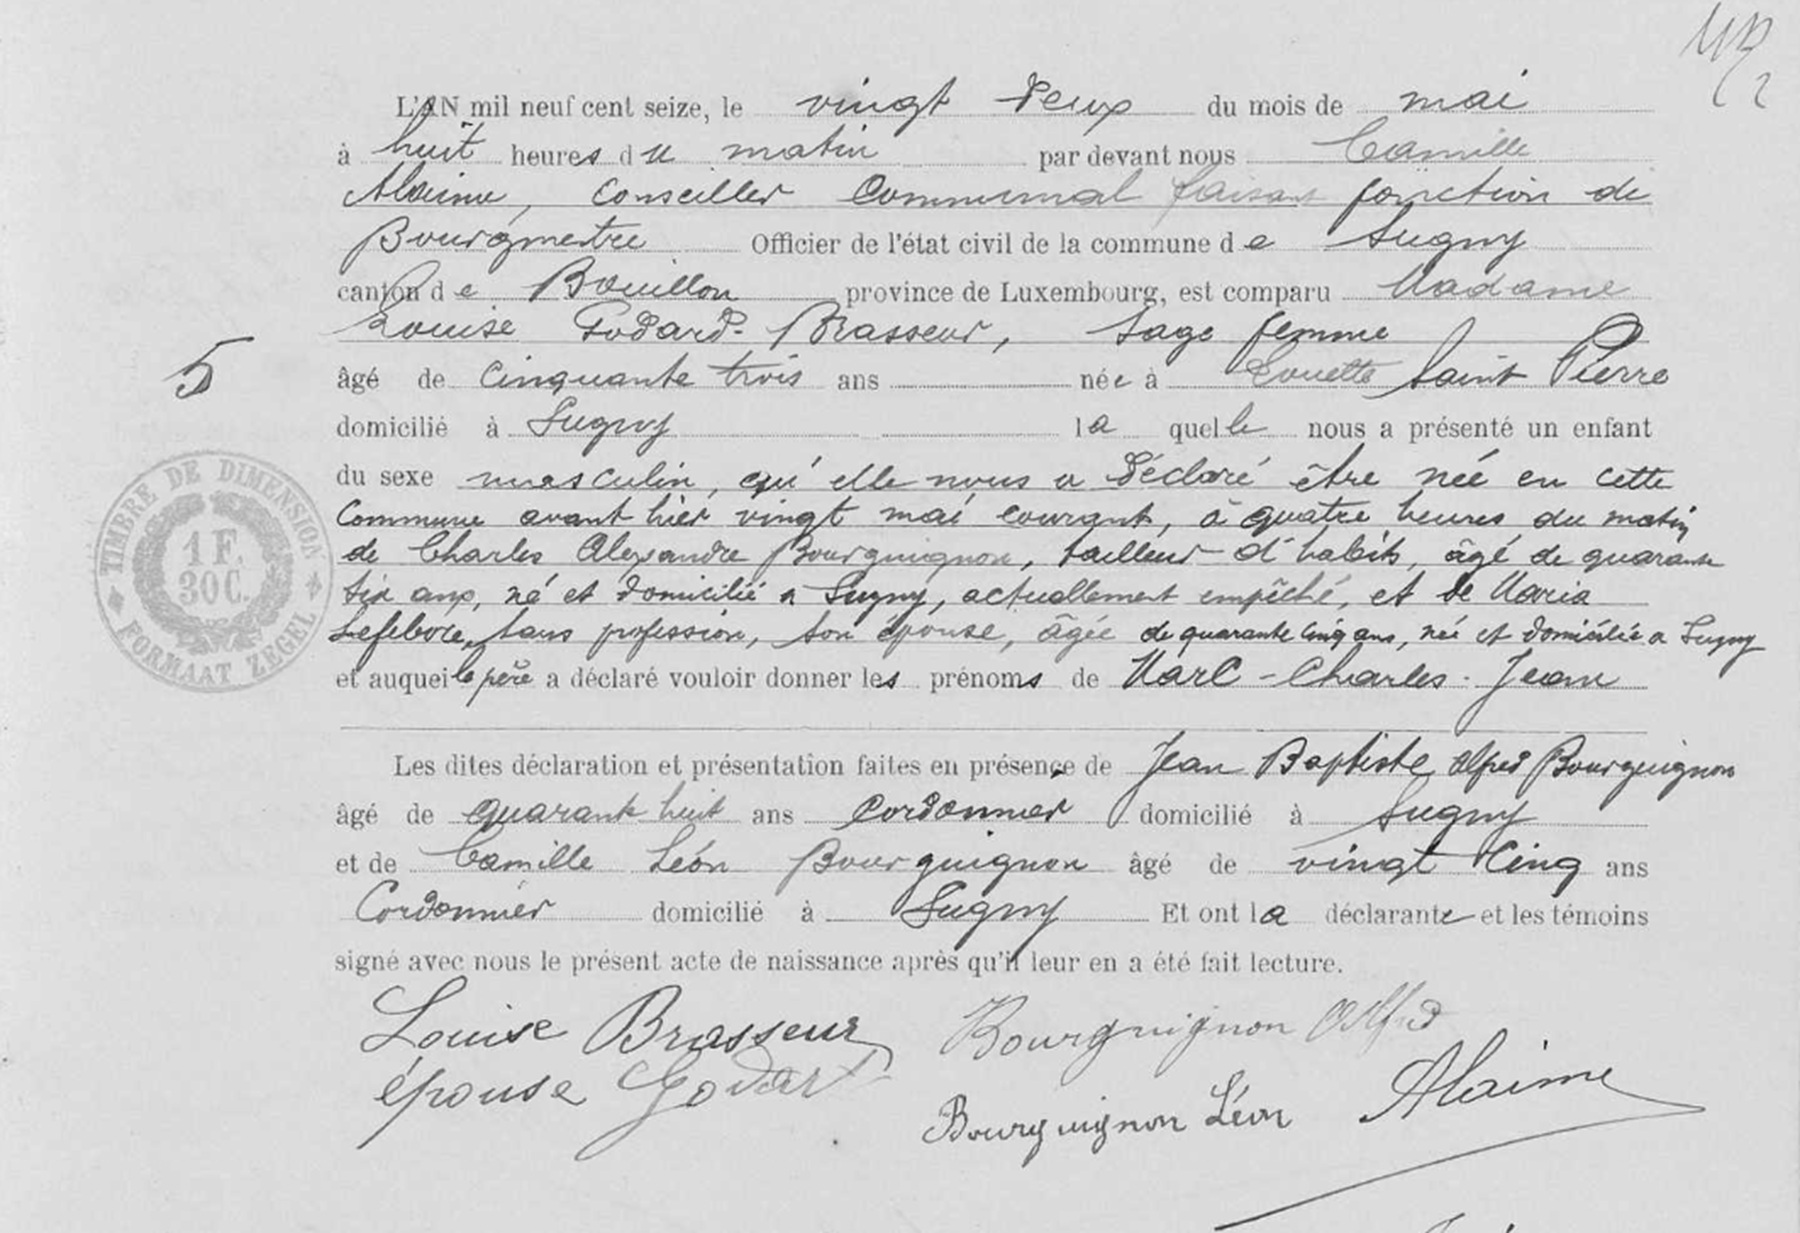 L'AN mil neuf cent seize, le vingt deux du mois de mai
à huit heures du matin par devant nous Camille
Alaime, Conseiller Communal faisant fonction de
Bourgmestre Officier de l'état civil de la commune de Sugny
canton de Bouillon province de Luxembourg, est comparu Madame
Louise Godard-Brasseur, Sage femme
âgé de cinquante trois ans née à Louette Saint Pierre
domicilié à Sugny la quelle nous a présenté un enfant
du sexe masculin, qu'elle nous a déclaré être née en cette
Commune avant hier vingt mai courant, à quatre heures du matin
de Charles Alexandre Bourguignon, tailleur d'habits, âgé de quarante
six ans, né et domicilié a Sugny, actuellement empêché, et de Maria
Lefebvre, sans profession, son épouse, âgée de quarante cinq ans, née et domiciliée a Sugny
et auquel le père a déclaré vouloir donner les prénoms de Marc-Charles-Jean
Les dites déclaration et présentation faites en présence de Jean Baptiste Alfred Bourguignon
âgé de quarante huit ans Cordonnier domicilié à Sugny
et de Camille Léon Bourguignon âgé de vingt cinq ans
Cordonnier domicilié à Sugny Et ont la déclarante et les témoins
signé avec nous le présent acte de naissance après qu'il leur en a été fait lecture.
Louise Brasseur Bourguignon Alfred
épouse Godart
Bourguignon Léon Alaime
5
TIMBRE DE DIMENSION
1 F.
30 C.
FORMAAT ZEGEL